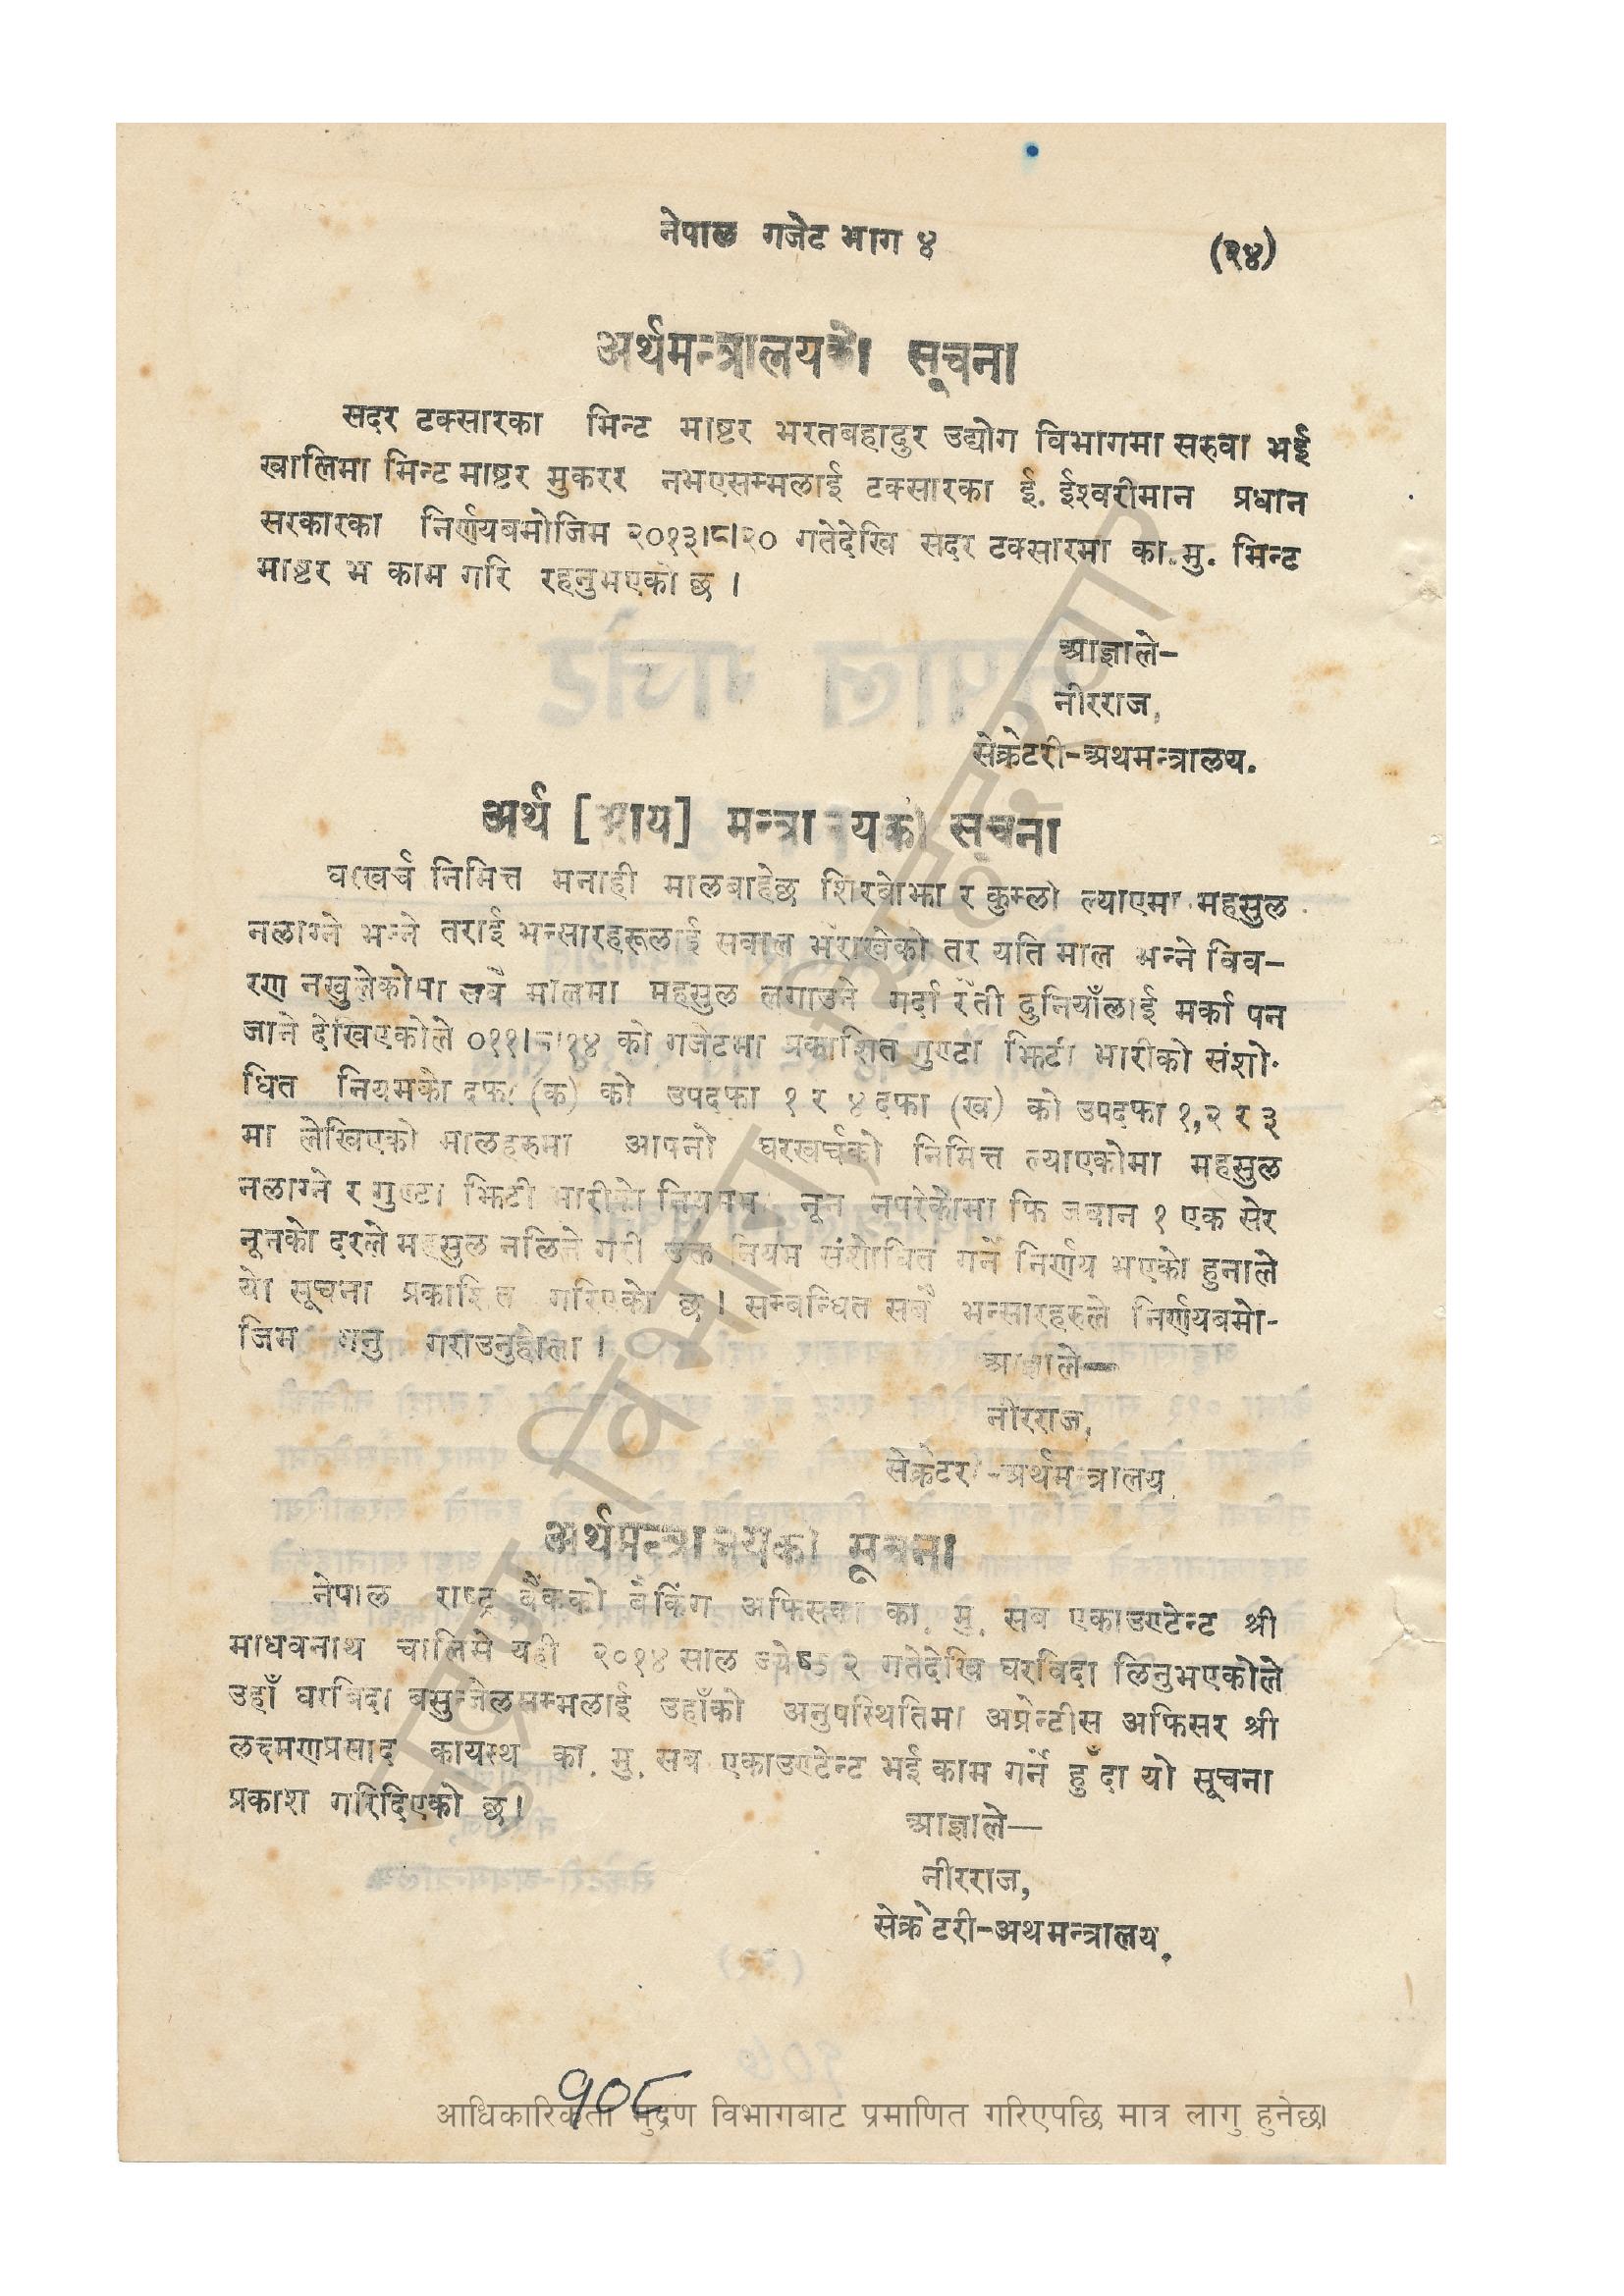 नेपाल गजेट भाग ४ (२४)
अर्थमन्त्रालयको सूचना
सदर टक्सारका मिन्ट माष्टर भरतबहादुर उद्योग विभागमा सरुवा भई
खालिमा मिन्ट माष्टर मुकरर नभएसम्मलाई टक्सारका ई. ईश्वरीमान प्रधान
सरकारका निर्णयबमोजिम २०१३।८।२० गतेदेखि सदर टक्सारमा का.मु. मिन्ट
माष्टर भ काम गरि रहनुभएको छ ।
आज्ञाले–
नीरराज,
सेक्रेटरी–अथमन्त्रालय.
अर्थ [आय] मन्त्रालयको सूचना
निमित्त मनाही मालबाहेछ शिरबोझा र कुम्लो ल्याएमा महसुल
नलाग्ने भन्ने तराई भन्सारहरूलाई सवाल भैराखेको तर यति माल भन्ने विव–
रण नखुलेकोमा सबै मालमा महसुल लगाउने गर्दा रैती दुनियाँलाई मर्का पन
जाने देखिएकोले को गजेटमा प्रकाशित गुण्टा झिटी भारीको संशो-
धित नियमको दफा (क) को उपदफा १ र ४ दफा (ख) को उपदफा १,२ र ३
मा लेखिएको मालहरुमा आफ्नो घरखर्चको निमित्त ल्याएकोमा महसुल
नलाग्ने र गुण्टा झिटी भारीको नियममा नून नपरेकोमा फि जवान १ एक सेर
नूनको दरले महसुल नलिने गरी उक्त नियम संशोधित गर्ने निर्णय भएको हुनाले
यो सूचना प्रकाशित गरिएको छ । सम्बन्धित सबै भन्सारहरुले निर्णयबमो-
जिम गर्नु गराउनुहोला ।
आज्ञाले—
नीरराज,
सेक्रेटरी–अर्थमन्त्रालय
अर्थमन्त्रालयको सूचना
नेपाल राष्ट्र बैंकको बैंकिंग अफिसका का. मु. सब एकाउण्टेन्ट श्री
माधवनाथ चालिसे यही २०१४ साल ज्येष्ठ २ गतेदेखि घरविदा लिनुभएकोले
उहाँ घरबिदा बसुन्जेलसम्मलाई उहाँको अनुपस्थितिमा अप्रेन्टीस अफिसर श्री
लक्ष्मणप्रसाद कायस्थ का. मु. सब एकाउण्टेन्ट भई काम गर्ने हुँदा यो सूचना
प्रकाश गरिदिएको छ।
आज्ञाले—
नीरराज,
सेक्रेटरी–अथमन्त्रालय.
१०८
आधिकारिकता मुद्रण विभागबाट प्रमाणित गरिएपछि मात्र लागु हुनेछ।
मुद्रण विभाग, सिंहदरबार